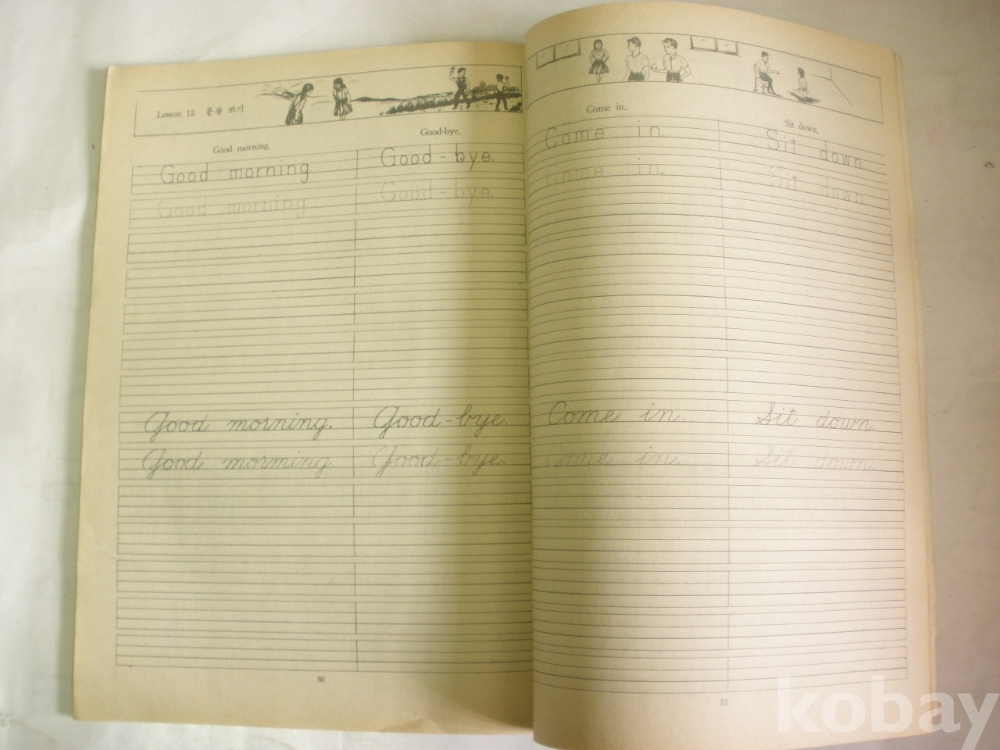 Lesson 12 문장 쓰기
Good morning.
Good-bye.
Good morning
Good-bye.
Good morning
Good-bye.
Good morning.
Good-bye.
Good morning.
Good-bye.
50
Come in.
Sit down.
Come in.
Sit down.
Come in.
Sit down.
Come in.
Sit down.
Come in.
Sit down.
51
kobay